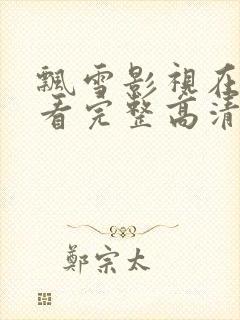 飄雪影視在
看完整高清
鄭宗太